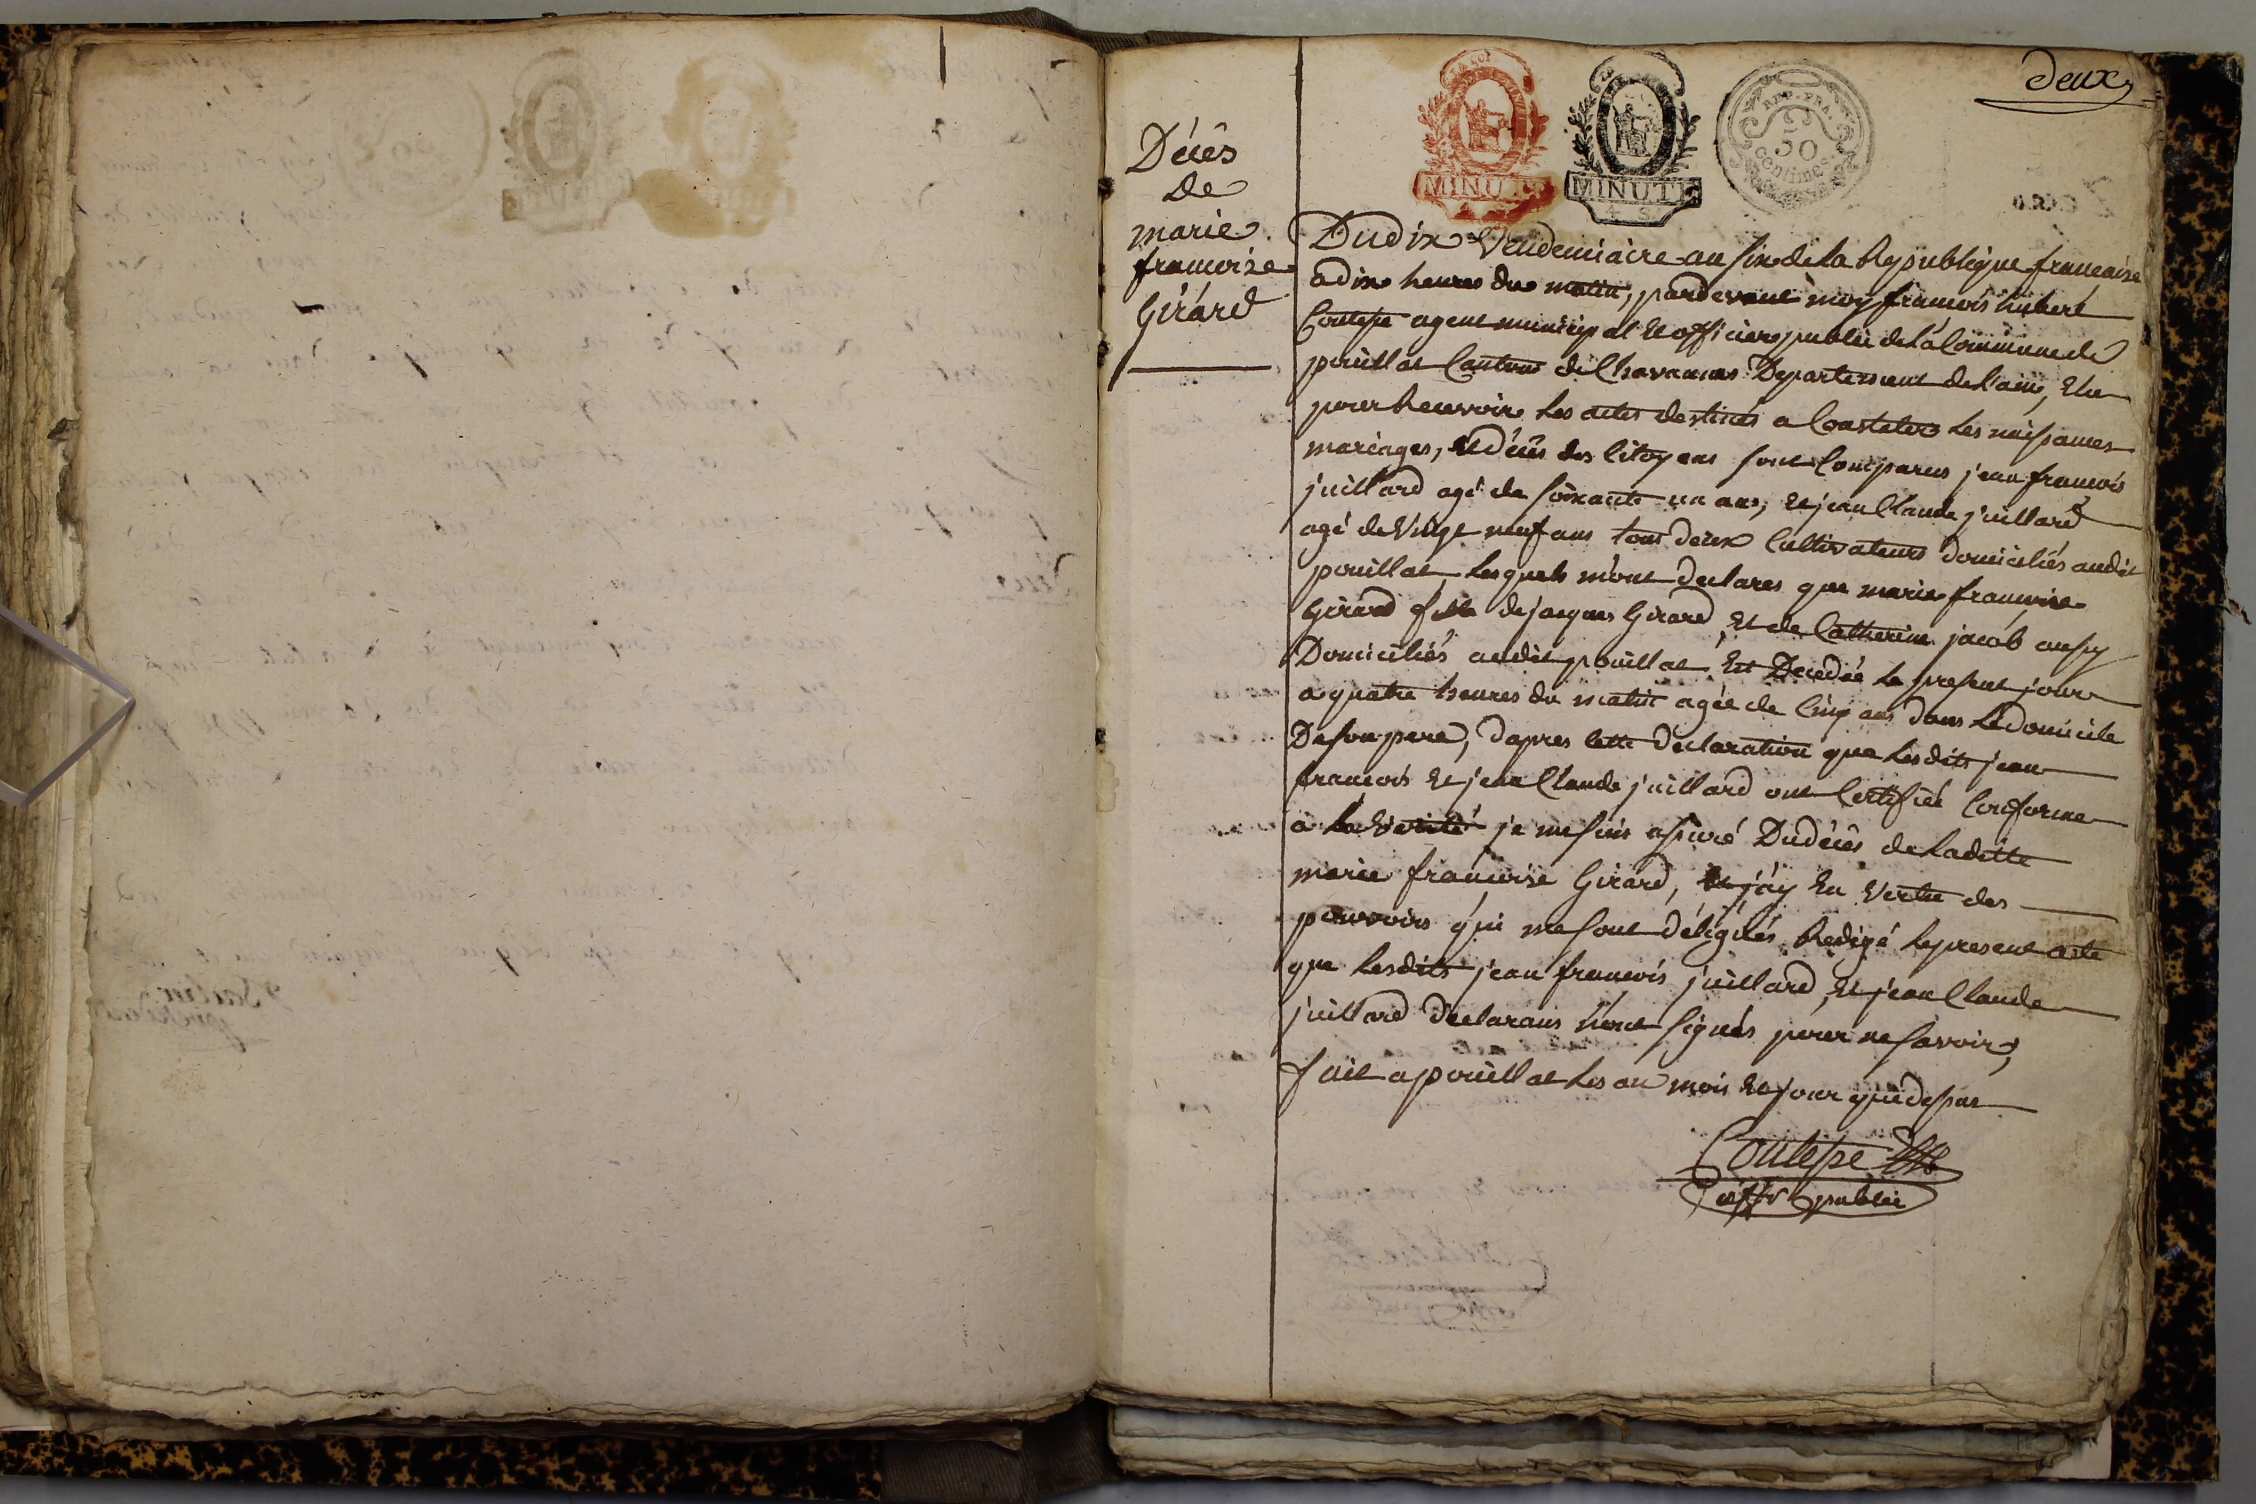 deux
MINUTE
MINUTE
4 S
REP. FRA.
50
centimes
Décès
de
marie
francoise
Girard
Du dix Vendemiaire an six de la Republique francaise
a dix heures du matin, pardevant moy francois hubert
Contepe agent municipal et officier public de la Commune de
pouillat Canton de Chavannes Departement de l'ain, Elu
pour Recevoir les actes destinés a Constater les naissances
mariages, et décès des Citoyens sont Comparus jean francois
juillard agé de soixante un ans, et jean Claude juillard
agé de Vingt neuf ans tous deux Cultivateurs domiciliés audit
pouillat, lesquels m'ont declares que marie francoise
Girard fille de jacques Girard, et de Catherine jacob aussy
Domiciliés audit pouillat Est Decedée le present jour
a quatre heures du matin agée de Cinq ans dans le domicile
De son pere, d'apres cette declaration que lesdits jean
francois et jean Claude juillard ont Certifiée Conforme
a la Verité je me suis assuré Du décès de ladette
marie francoise Girard, et j'ay En Vertu des
pouvoirs qui me sont délégués Redigé le present acte
que lesdits jean francois juillard, et jean Claude
juillard declarans n'ont signés pour ne savoir,
fait a pouillat les an mois et jour que dessus
Contepe
offr public